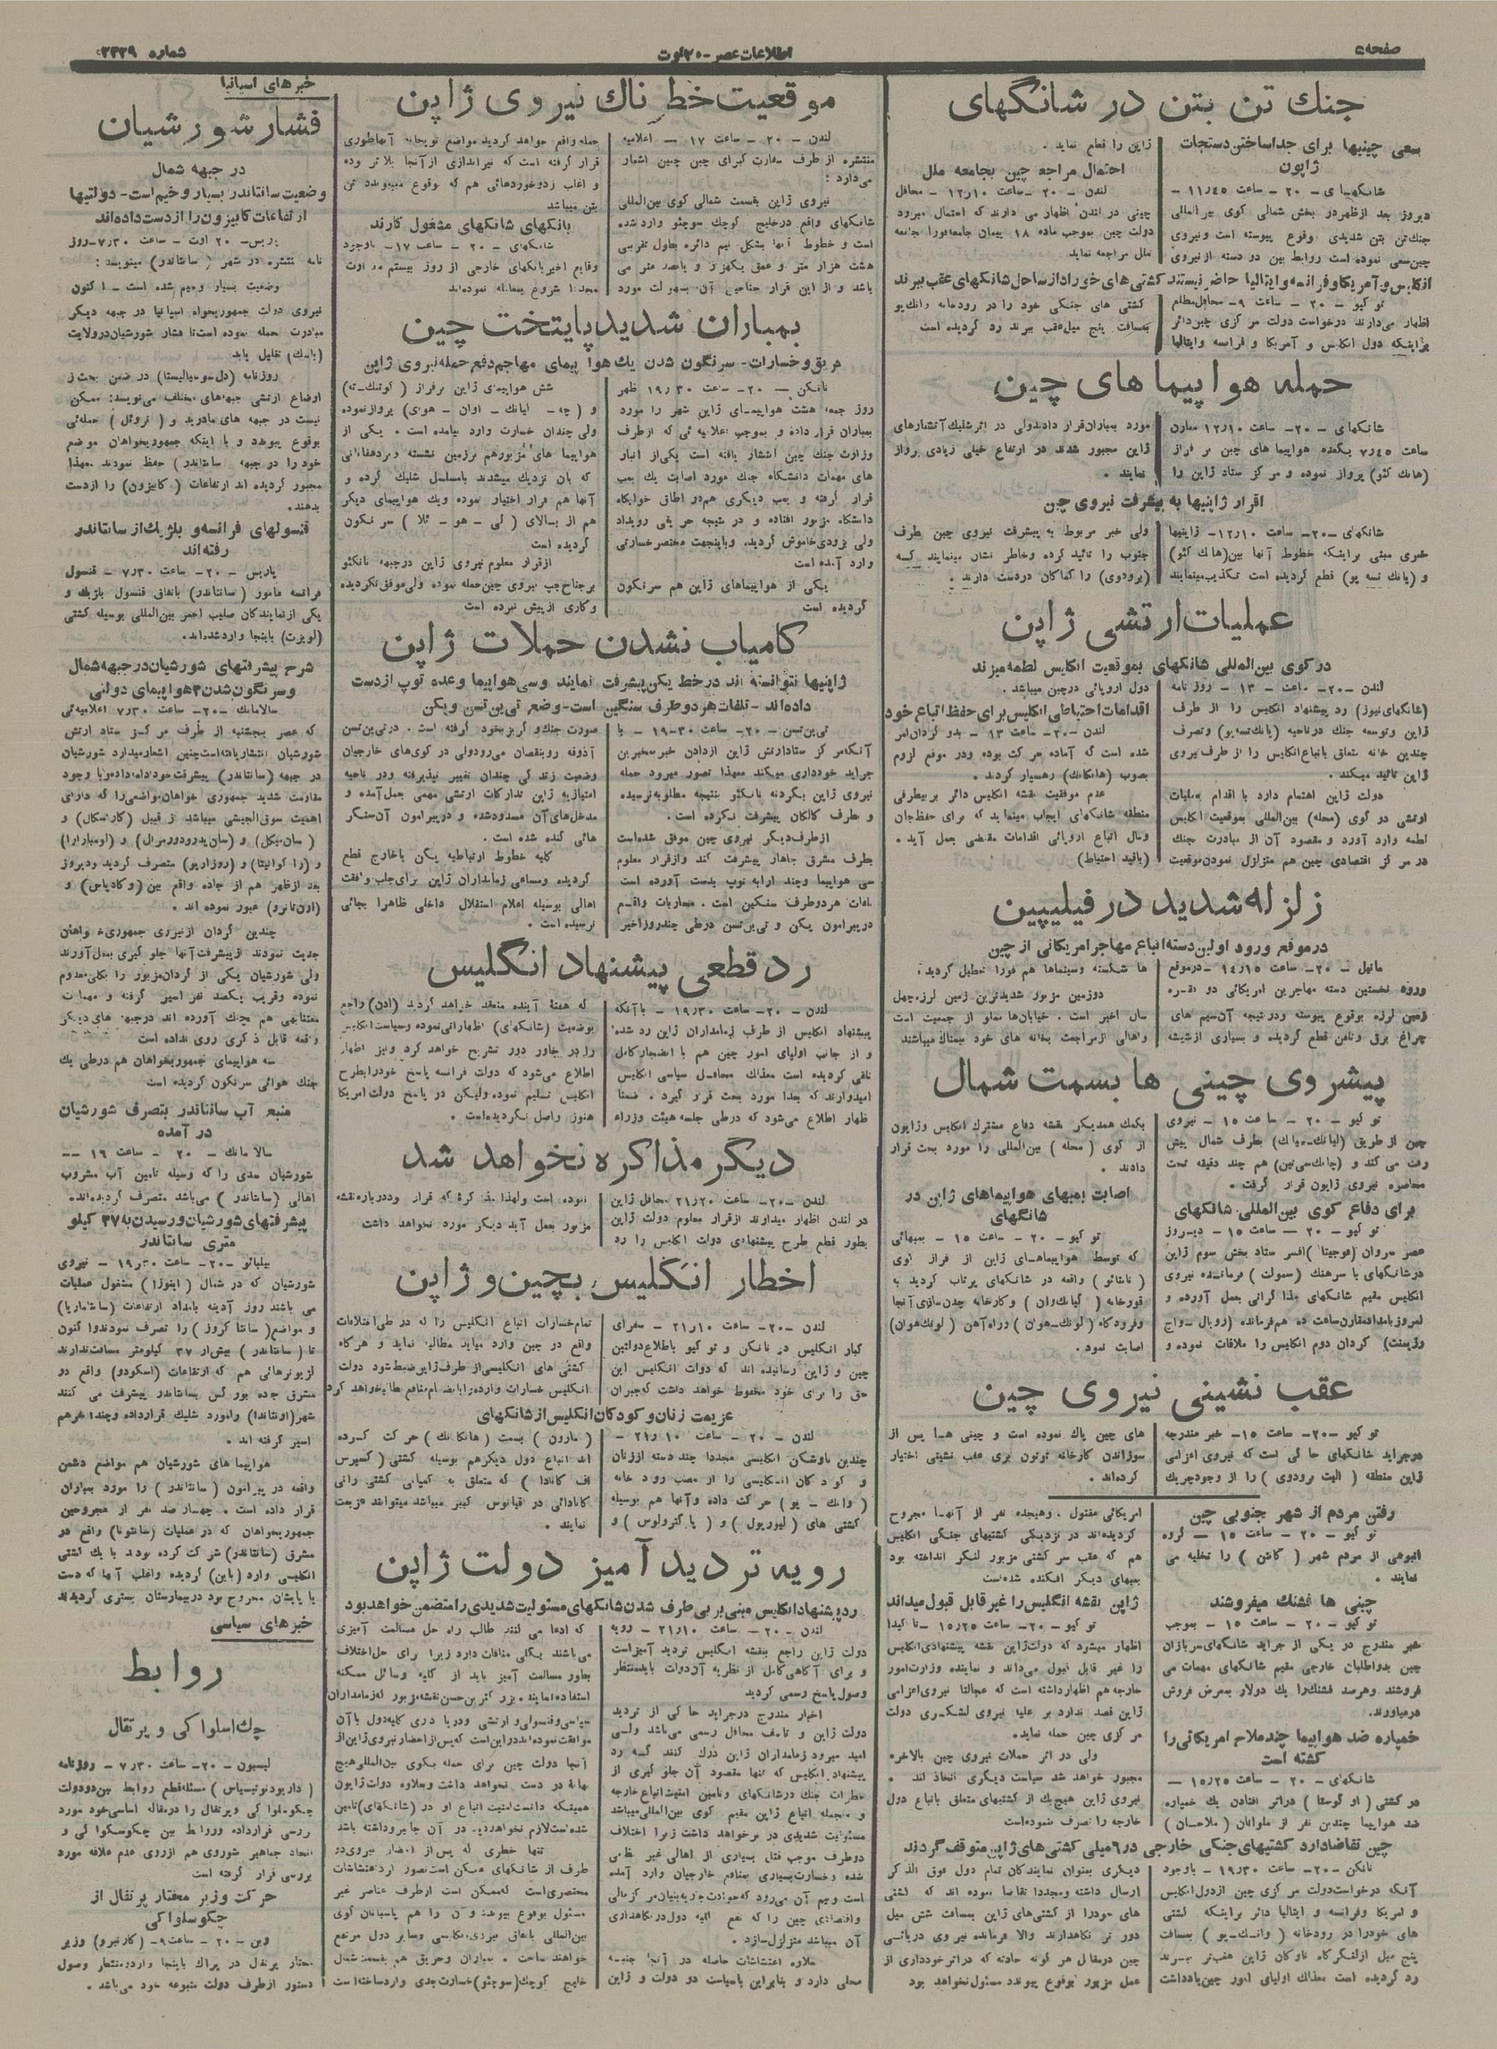 صفحه ۵
اطلاعات عصر - ۲۰ اوت
شماره ۳۳۳۹
جنك تن بتن در شانگهای
سعی چینیها برای جداساختن دستجات
ژاپون
شانگهای - ۲۰ - ساعت ۱۱٫۴۵ -
دیروز بعد ازظهر در بخش شمالی کوی بین المللی
جنك تن بتن شدیدی وقوع پیوسته است و نیروی
چین سعی نموده است روابط بین دو دسته از نیروی
ژاپن را قطع نماید .
احتمال مراجعه چین بجامعه ملل
لندن - ۲۰ - ساعت ۱۲٫۱۰ - محافل
چینی در لندن اظهار می دارند که احتمال میرود
دولت چین بموجب ماده ۱۸ پیمان جامعه فورا بجامعه
ملل مراجعه نماید
انگلیس و آمریکا و فرانسه و ایتالیا حاضر نیستند کشتی های خود را از ساحل شانگهای عقب ببرند
توکیو - ۲۰ - ساعت ۹ - محافل مطلع
اظهار می‌دارند درخواست دولت مرکزی چین دائر
براینکه دول انگلیس و آمریکا و فرانسه و ایتالیا
کشتی های جنگی خود را در رودخانه وانك یو
بمسافت پنج میل عقب ببرند رد گردیده است
حمله هواپیماهای چین
شانگهای - ۲۰ - ساعت ۱۲٫۱۰ مقارن
ساعت ۷٫۴۵ یکعده هواپیما های چین بر فراز
(هانك کئو) پرواز نموده و مرکز ستاد ژاپن را
مورد بمباران قرار دادند ولی در اثر شلیك آتشبارهای
ژاپن مجبور شدند در ارتفاع خیلی زیادی پرواز
نمایند .
اقرار ژاپنیها به پیشرفت نیروی چین
شانگهای - ۲۰ - ساعت ۱۲٫۱۰ - ژاپنیها
خبری مبنی براینکه خطوط آنها بین (هانك کئو)
و (یانك تسه پو) قطع گردیده است تکذیب مینمایند
ولی خبر مربوط به پیشرفت نیروی چین بطرف
جنوب را تائید کرده و خاطر نشان مینمایند که
(برودوی) را کماکان در دست دارند .
عملیات ارتشی ژاپن
در کوی بین‌المللی شانگهای بموقعیت انگلیس لطمه میزند
لندن - ۲۰ - ساعت - ۱۳ - روزنامه
(شانگهای نیوز) رد پیشنهاد انگلیس را از طرف
ژاپن و توسعه جنك در ناحیه (یانك تسه پو) و تصرف
چندین خانه متعلق باتباع انگلیس را از طرف نیروی
ژاپن تائید میکند .
دولت ژاپن اهتمام دارد با اقدام عملیات
ارتشی در کوی (محله) بین‌المللی بموقعیت انگلیس
لطمه وارد آورد و مقصود آن از مبادرت جنك
در مرکز اقتصادی چین هم متزلزل نمودن موقعیت
دول اروپائی در چین میباشد .
اقدامات احتیاطی انگلیس برای حفظ اتباع خود
لندن - ۲۰ - ساعت ۱۳ - بدو گردان امر
شده است که آماده حرکت بوده و در موقع لزوم
بصوب (هانکانك) رهسپار گردند .
عدم موفقیت نقشه انگلیس دائر بر بیطرفی
منطقه شانگهای ایجاب مینماید که برای حفظ جان
و مال اتباع اروپائی اقدامات مقتضی بعمل آید .
(باقید احتیاط)
زلزله شدید در فیلیپین
در موقع ورود اولین دسته اتباع مهاجر امریکائی از چین
مانیل - ۲۰ - ساعت ۱۴٫۱۵ - در موقع
ورود نخستین دسته مهاجرین امریکائی دو فقره
زمین لرزه بوقوع پیوسته و در نتیجه آن سیم های
چراغ برق و تلفن قطع گردیده و بسیاری از شیشه
ها شکسته و سینماها هم فورا تعطیل گردید .
دو زمین مزبور شدیدترین زمین لرزه چهل
سال اخیر است . خیابان‌ها مملو از جمعیت است
و اهالی از مراجعت بخانه های خود بیمناك میباشند
پیشروی چینی ها بسمت شمال
توکیو - ۲۰ - ساعت ۱۵ - نیروی
چین از طریق (لیانك‌سیاك) بطرف شمال پیش
رفت می کند و (چانك‌سی‌تین) هم چند دقیقه تحت
محاصره نیروی ژاپون قرار گرفت .
برای دفاع کوی بین‌المللی شانگهای
توکیو - ۲۰ - ساعت ۱۵ - دیروز
عصر سروان (موجیتا) افسر ستاد بخش سوم ژاپن
در شانگهای با سرهنك (سمولت) فرمانده نیروی
انگلیس مقیم شانگهای مذاکراتی بعمل آورده و
امروز بامداد مقارن ساعت ده هم فرمانده (رویال - واچ
رژیمنت) گردان دوم انگلیس را ملاقات نموده و
بکمك همدیگر نقشه دفاع مشترك انگلیس و ژاپون
از کوی (محله) بین‌المللی را مورد بحث قرار
دادند .
اصابت بمبهای هواپیماهای ژاپن در
شانگهای
توکیو - ۲۰ - ساعت ۱۵ - بمبهائی
که توسط هواپیماهای ژاپن از فراز کوی
(نانتائو) واقعه در شانگهای پرتاب گردید به
قورخانه (کیانك‌وان) و کارخانه چدن سازی آنجا
و فرودگاه (لونك‌هوان) و راه آهن (لونك‌هوان)
اصابت نمود .
عقب نشینی نیروی چین
توکیو - ۲۰ - ساعت ۱۵ - خبر مندرجه
در جراید شانگهای حاکی است که نیروی اعزامی
ژاپن منطقه (ایست برودوی) را از وجود چریك
های چین پاك نموده است و چینی ها پس از
سوزاندن کارخانه توتون بری عقب نشینی اختیار
کرده‌اند .
رفتن مردم از شهر جنوبی چین
توکیو - ۲۰ - ساعت ۱۵ - گروه
انبوهی از مردم شهر (کانتن) را تخلیه می
نمایند .
چینی ها فشنك میفروشند
توکیو - ۲۰ - ساعت ۱۵ - بموجب
خبر مندرج در یکی از جراید شانگهای سربازان
چین بداوطلبان خارجی مقیم شانگهای مهمات می
فروشند و هر صد فشنك را یك دولار بمعرض فروش
درمیآورند.
خمپاره ضد هواپیما چند ملاح امریکائی را
کشته است
شانگهای - ۲۰ - ساعت ۱۵٫۲۵ -
در کشتی (اوگوستا) در اثر افتادن یك خمپاره
ضد هواپیما چندین نفر از ملوانان (ملاحان)
امریکائی مقتول . و هیجده نفر از آنها مجروح
گردیده‌اند در نزدیکی کشتیهای جنگی انگلیس
هم که عقب سر کشتی مزبور لنگر انداخته بود
بمبهای دیگر افکنده شده است
ژاپن نقشه انگلیس را غیر قابل قبول میداند
توکیو - ۲۰ - ساعت ۱۵٫۲۵ - تاکیدا
اظهار میشود که دولت ژاپن نقشه پیشنهادی انگلیس
را غیر قابل قبول می‌داند و نماینده وزارت امور
خارجه هم اظهار داشته است که عجالتا نیروی اعزامی
ژاپن قصد ندارد بر علیه نیروی لشکری دولت
مرکزی چین حمله نماید.
ولی در اثر حملات نیروی چین بالاخره
مجبور خواهد شد سیاست دیگری اتخاذ کند .
نیروی ژاپن هیچ یك از کشتیهای متعلق باتباع دول
خارجه را تصرف ننموده است
چین تقاضا دارد کشتیهای جنگی خارجی در ۶ میلی کشتی های ژاپن متوقف گردند
نانکن - ۲۰ - ساعت ۱۹٫۳۰ - باوجود
آنکه درخواست دولت مرکزی چین از دول انگلیس
و امریکا و فرانسه و ایتالیا دائر براینکه کشتی
های خود را در رودخانه (وانك‌یو) بمسافت
پنج میل از لنگرگاه ناوگان ژاپن عقب‌تر ببرند
رد گردیده است معذلك اولیای امور چین یادداشت
دیگری بعنوان نمایندگان تمام دول فوق الذکر
ارسال داشته و مجددا تقاضا نموده اند که کشتی
های خود را از کشتی‌های ژاپن بمسافت شش میل
دور تر نگاهدارند والا فرمانده نیروی دریائی
چین در مقابل هر گونه حادثه که در اثر خودداری از
عمل مزبور بوقوع پیوندد مسئول نخواهد بود
موقعیت خطرناك نیروی ژاپن
لندن - ۲۰ - ساعت ۱۷ - اعلامیه
منتشره از طرف سفارت کبرای چین چنین اشعار
می‌دارد :
نیروی ژاپن بقسمت شمالی کوی بین‌المللی
شانگهای واقع در خلیج کوچك سوچئو وارد شده
است و خطوط آنها بشکل نیم دائره بطول تقریبی
هشت هزار متر و عمق یکهزار و پانصد متر می
باشد و از این قرار جناحین آن بسهولت مورد
حمله واقع خواهد گردید مواضع توپخانه آنها طوری
قرار گرفته است که تیراندازی از آنجا بلا اثر بوده
و اغلب زدوخوردهائی هم که بوقوع میپیوندد تن
بتن میباشد
بانکهای شانگهای مشغول کارند
شانگهای - ۲۰ - ساعت ۱۷ - باوجود
وقایع اخیر بانکهای خارجی از روز بیستم ماه اوت
مجددا شروع بمعامله نموده‌اند
بمباران شدید پایتخت چین
حریق و خسارات - سرنگون شدن یك هواپیمای مهاجم دفع حمله نیروی ژاپن
نانکن - ۲۰ - ساعت ۱۹٫۳۰ ظهر
روز جمعه هشت هواپیمای ژاپن شهر را مورد
بمباران قرار داده و بموجب اعلامیه ئی که از طرف
وزارت جنك چین انتشار یافته است یکی از انبار
های مهمات دانشگاه جنك مورد اصابت یك بمب
قرار گرفته و بمب دیگری هم در اطاق خوابگاه
دانشگاه مزبور افتاده و در نتیجه حریقی رویداد
ولی بزودی خاموش گردید. و باینجهت مختصر خسارتی
وارد آمده است
یکی از هواپیماهای ژاپن هم سرنگون
گردیده است
شش هواپیمای ژاپن بر فراز (کوانك‌ته)
و (چه - کیانك - اوان - هوای) پرواز نموده
ولی چندان خسارت وارد نیامده است . یکی از
هواپیما های مزبور هم بر زمین نشسته و بر دهقانانی
که بان نزدیك میشدند با مسلسل شلیك کرده و
آنها هم فرار اختیار نموده و یك هواپیمای دیگر
هم از بالای (لی - هو - ئلا) سرنگون
گردیده است
از قرار معلوم نیروی ژاپن در جبهه نانکئو
بر جناح چپ نیروی چین حمله نموده ولی موفق نگردیده
و کاری از پیش نبرده است
کامیاب نشدن حملات ژاپن
ژاپنیها نتوانسته اند در خط پکن پیشرفت نمایند و سی هواپیما و عده توپ از دست
داده‌اند - تلفات هر دو طرف سنگین است - وضع تی‌ین‌تسن و پکن
تی‌ین‌تسن - ۲۰ - ساعت ۱۹٫۳۰ - با
آنکه مرکز ستاد ارتش ژاپن از دادن خبر بمخبرین
جراید خودداری میکند معهذا تصور میرود حمله
نیروی ژاپن بگردنه نانکئو نتیجه مطلوبه نرسیده
و طرف کالگان پیشرفت نکرده است .
از طرف دیگر نیروی چین موفق شده است
بطرف مشرق چاهار پیشرفت کند و از قرار معلوم
سی هواپیما و چند ارابه توپ بدست آورده است
تلفات هر دو طرف سنگین است . محاربات واقعه
در پیرامون پکن و تی‌ین‌تسن در طی چند روز اخیر
صورت جنك و گریز بخود گرفته است . در تی‌ین‌تسن
آذوقه رو بنقصان می‌رود ولی در کوی های خارجیان
وضعیت زندگی چندان تغییر نپذیرفته و در ناحیه
امتیازیه ژاپن تدارکات ارتشی مهمی بعمل آمده و
مدخل‌های آن مسدود شده و در پیرامون آن سنگر
هائی کنده شده است .
کلیه خطوط ارتباطیه پکن با خارج قطع
گردیده و مساعی زمامداران ژاپن برای جلب موافقت
اهالی بوسیله اعلام استقلال داخلی ظاهرا بجائی
نرسیده است .
رد قطعی پیشنهاد انگلیس
لندن - ۲۰ - ساعت ۱۹٫۳۰ - با آنکه
پیشنهاد انگلیس از طرف زمامداران ژاپن رد شده
و از جانب اولیای امور چین هم با انضجار کامل
تلقی گردیده است معذلك محافل سیاسی انگلیس
امیدوارند که بعدا مورد بحث قرار گیرد . ضمنا
اظهار اطلاع می‌شود که در طی جلسه هیئت وزراء
که هفته آینده منعقد خواهد گردید (ایدن) راجع
بوضعیت (شانگهای) اظهاراتی نموده و سیاست انگلیس
را در خاور دور تشریح خواهد کرد و نیز اظهار
اطلاع می‌شود که دولت فرانسه پاسخ خود را بطرح
انگلیس تسلیم نموده ولیکن در پاسخ دولت امریکا
هنوز واصل نگردیده است .
دیگر مذاکره نخواهد شد
لندن - ۲۰ - ساعت ۲۱٫۲۰ محافل ژاپن
در لندن اظهار میدارند از قرار معلوم دولت ژاپن
بطور قطع طرح پیشنهادی دولت انگلیس را رد
نموده است و لهذا مذاکره که قرار بود درباره نقشه
مزبور بعمل آید دیگر مورد نخواهد داشت
اخطار انگلیس بچین و ژاپن
لندن - ۲۰ - ساعت ۲۱٫۱۰ - سفرای
کبار انگلیس در نانکن و توکیو باطلاع دولتین
چین و ژاپن رسانیده اند که دولت انگلیس این
حق را برای خود محفوظ خواهد داشت که جبران
تمام خسارات اتباع انگلیس را که در طی اختلافات
واقع در چین وارد میاید مطالبه نماید و هر گاه
کشتی های انگلیسی از طرف ژاپن ضبط شود دولت
انگلیس خسارات وارده را بانضمام منافع مطالبه خواهد کرد
عزیمت زنان و کودکان انگلیس از شانگهای
لندن - ۲۰ - ساعت ۲۱٫۱۰ -
چندین ناوشکن انگلیسی مجددا چند دسته از زنان
و کودکان انگلیسی را از مصب رود خانه
(وانك - پو) حرکت داده و آنها هم بوسیله
کشتی های (لیورپول) و (پاکترولوس) و
(مارون) بسمت (هانکانك) حرکت کرده
اند اتباع دول دیگر هم بوسیله کشتی (کمپرس
اف کانادا) که متعلق به کمپانی کشتی رانی
کانادائی در اقیانوس کبیر میباشد میتوانند عزیمت
نمایند .
رویه تردید آمیز دولت ژاپن
رد پیشنهاد انگلیس مبنی بر بی طرف شدن شانگهای مسئولیت شدیدی را متضمن خواهد بود
لندن - ۲۰ - ساعت ۲۱٫۱۰ - رویه
دولت ژاپن راجع بنقشه انگلیس تردید آمیز است
و برای آگاهی کامل از نظریه آن دولت باید منتظر
وصول پاسخ رسمی گردید
اخبار مندرج در جراید حاکی از تردید
دولت ژاپن و تاسف محافل رسمی می‌باشد ولی
امید میرود زمامداران ژاپن درك کنند که رد
پیشنهاد انگلیس که تنها مقصود آن جلوگیری از
خطرات جنك در شانگهای و تامین امنیت اتباع خارجه
و منجمله اتباع ژاپن مقیم کوی بین المللی میباشد
مسئولیت شدیدی در بر خواهد داشت زیرا اختلاف
دو طرف موجب قتل بسیاری از اهالی غیر نظامی
شده و خسارت بسیاری بمنافع خارجیان وارد آمده
است و بیم آن می‌رود که حوادث جاریه بنیان مرکز مالی
واقتصادی چین را که نفع کلیه دول در نگاهداری
آن میباشد متزلزل سازد .
علاوه اغتشاشات حاصله در آنجا جنبه
محلی دارد و بنابراین با سیاست دو دولت و ژاپن
که ادعا می کنند طالب راه حل مسالمت آمیزی
می‌باشند بکلی منافات دارد زیرا برای حل اختلاف
بطور مسالمت آمیز باید از کلیه وسائل ممکنه
استفاده نمایند . بزرگترین حسن نقشه مزبور که زمامداران
سیاسی و قنسولی و ارتشی و دریاداری کلیه دول با آن
موافقت نموده‌اند در این است که پس از احضار نیروی ژاپن از
آنجا دولت چین برای حمله بکوی بین‌المللی هیچ
بهانه در دست نخواهد داشت و بعلاوه دولت ژاپون
همینکه دانست امنیت اتباع او در (شانگهای) تامین
شده است لازم نخواهد دید. در آن جا نیرو داشته باشد
تنها خطری که پس از احضار نیروی دو
طرف از شانگهای ممکن است تصور کرد اغتشاشات
مختصری است که ممکن است از طرف عناصر غیر
مسئول بوقوع بپیوندد و آن را هم پاسبانان کوی
بین‌المللی باتفاق نیروی انگلیسی و سایر دول مرتفع
خواهند ساخت . بمباران و حریق هم بقسمت شمال
خلیج کوچك (سوچئو) خسارت جدی وارد ساخته است
خبرهای اسپانیا
فشار شورشیان
در جبهه شمال
وضعیت سانتاندر بسیار وخیم است - دولتیها
ارتفاعات کابیزون را از دست داده‌اند
پاریس - ۲۰ اوت - ساعت ۷٫۳۰ - روز
نامه منتشره در شهر (سانتاندر) مینویسد :
وضعیت بسیار وخیم شده است - تاکنون
نیروی دولت جمهوریخواه اسپانیا در جبهه دیگر
مبادرت بحمله نموده است تا فشار شورشیان در ولایت
(باسك) تقلیل یابد
روزنامه (دل‌سوسیالیستا) در ضمن بحث از
اوضاع ارتشی جبهه‌های مختلف می‌نویسد: ممکن
نیست در جبهه های مادرید و (تروئل) حمله‌ئی
بوقوع بپیوندد و با اینکه جمهوریخواهان مواضع
خود را در جبهه (سانتاندر) حفظ نمودند معهذا
مجبور گردیده اند ارتفاعات (کابیزون) را از دست
بدهند.
قنسولهای فرانسه و بلژیك از سانتاندر
رفته‌اند
پاریس - ۲۰ - ساعت ۷٫۳۰ - قنسول
فرانسه مامور (سانتاندر) باتفاق قنسول بلژیك و
یکی از نمایندگان صلیب احمر بین‌المللی بوسیله کشتی
(لویزت) باینجا وارد شده‌اند.
شرح پیشرفتهای شورشیان در جبهه شمال
و سرنگون شدن ۳ هواپیمای دولتی
سالامانك - ۲۰ - ساعت ۷٫۳۰ اعلامیه‌ئی
که عصر پنجشنبه از طرف مرکز ستاد ارتش
شورشیان انتشار یافته است چنین اشعار میدارد شورشیان
در جبهه (سانتاندر) پیشرفت خود ادامه داده و با وجود
مقاومت شدید جمهوری خواهان مواضعی را که دارای
اهمیت سوق‌الجیشی میباشد از قبیل (کارآسکال) و
(سان‌میکل) و (سان‌پدرودورومرال) و (لومبارارا)
و (راکوائیتا) و (روزاریو) متصرف گردید و دیروز
بعد از ظهر هم از جاده واقع بین (وکادیاس) و
(اون‌تانرو) عبور نموده اند .
چندین گردان از نیروی جمهوریخواهان
جدیت نمودند از پیشرفت آنها جلوگیری بعمل آورند
ولی شورشیان یکی از گردان مزبور را بکلی معدوم
نموده و قریب یکصد نفر اسیر گرفته و مهمات
معتنابهی هم بچنك آورده اند در جبهه های دیگر
واقعه قابل ذکری روی نداده است
سه هواپیمای جمهوریخواهان هم در طی یك
جنك هوائی سرنگون گردیده است
منبع آب سانتاندر بتصرف شورشیان
در آمده
سالامانك - ۲۰ - ساعت ۱۹ --
شورشیان سدی را که وسیله تامین آب مشروب
اهالی (سانتاندر) می‌باشد متصرف گردیده‌اند.
پیشرفتهای شورشیان و رسیدن به ۳۷ کیلو
متری سانتاندر
بیلبائو - ۲۰ - ساعت ۱۹٫۳۰ - نیروی
شورشیان که در شمال (اینوزا) مشغول عملیات
می باشند روز آدینه بامداد ارتفاعات (سانتاماریا)
و مواضع (سانتاکروز) را تصرف نمودند و اکنون
تا (سانتاندر) بیش از ۳۷ کیلومتر مسافت ندارند
لژیونرهائی هم که ارتفاعات (اسکودو) واقع در
مشرق جاده بورگس بسانتاندر پیشرفت می کنند
شهر (اونتاندا) را مورد شلیك قرار داده و چند نفر هم
اسیر گرفته اند .
هواپیما های شورشیان هم مواضع دشمن
واقعه در پیرامون (سانتاندر) را مورد بمباران
قرار داده است . چهارصد نفر از مجروحین
جمهوریخواهان که در عملیات (سانتونا) واقع در
مشرق (سانتاندر) شرکت کرده بودند با یك کشتی
انگلیسی وارد (باین) گردیده و اغلب آنها که دست
یا پایشان مجروح بود در بیمارستان بستری گردیدند
خبرهای سیاسی
روابط
چك‌اسلواکی و پرتقال
لیسبون - ۲۰ - ساعت ۷٫۳۰ - روزنامه
(داریودنوتیسیاس) مسئله قطع روابط بین دو دولت
چکوسلواکی و پرتقال را در مقاله اساسی خود مورد
بررسی قرار داده و روابط بین چکوسلواکی و
اتحاد جماهیر شوروی هم از روی عدم علاقه مورد
بررسی قرار گرفته است
حرکت وزیر مختار پرتقال از
چکوسلواکی
وین - ۲۰ - ساعت ۹ - (کارنیرو) وزیر
مختار پرتقال در پراك باینجا وارد و منتظر وصول
دستور از طرف دولت متبوعه خود می‌باشد .